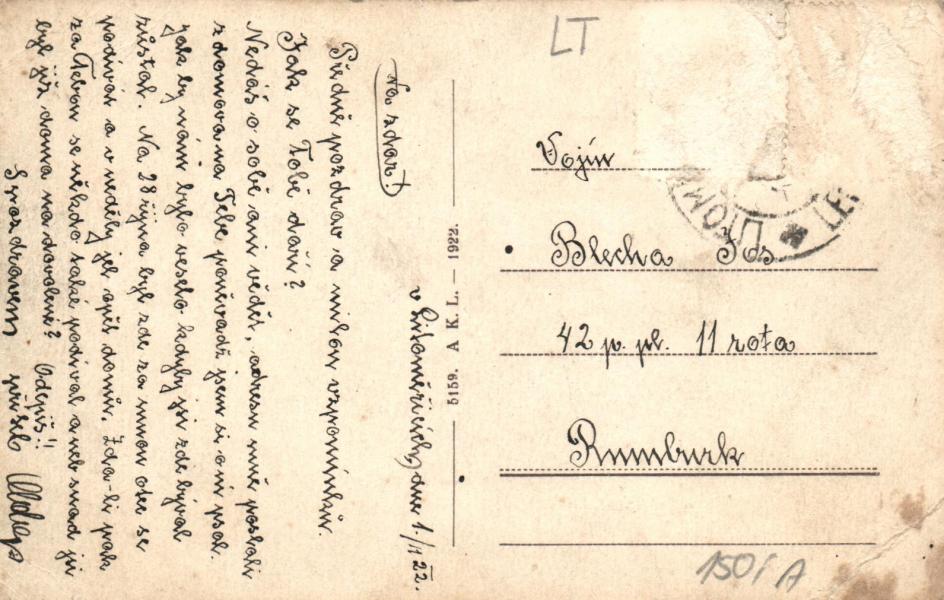 v Litoměřicích, dne 1./11 22.
Na zdar!
Předně pozdrav a milou vzpomínku.
Jak se Tobě daří?
Nedáš o sobě ani vědět, adresu mně poslali
z domova na Tebe, poněvadž jsem si o ni psal.
Jak by nám bylo veselo kdyby jsi zde býval
zůstal. Na 28 října byl zde za mnou otec se
podívat a v neděly jel opět domů. Zda-li pak
za Tebou se někdo také podíval aneb snad jsi
byl již doma na dovolené? Odepiš!!
S pozdravem přítel
LT
Vojín
Blecha Jos
42 p. pl. 11 rota
Rumburk
5159. A. K. L. — 1922.
LITOM
LEI
150/A